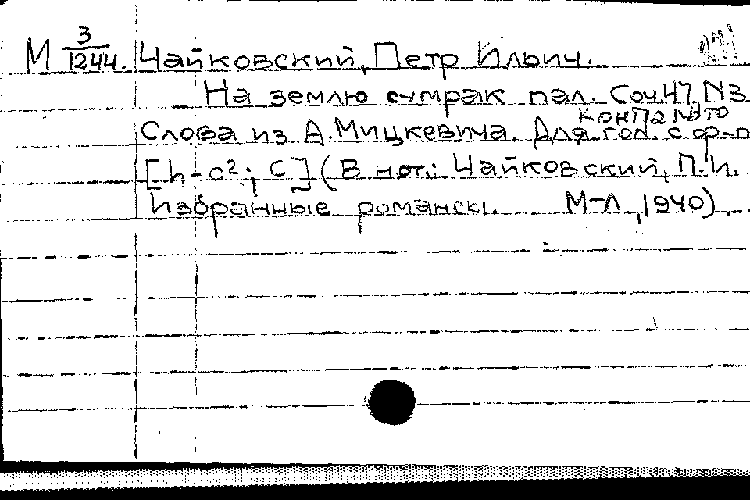 М 3/1244. Чайковский, Петр Ильич.
На землю сумрак пал. Соч.47, N3
контральто
Слова из А. Мицкевича. Для гол. с ф-п
[h-c²; C] (В нот.: Чайковский, П.И.
Избранные романсы. М-Л, 1940).